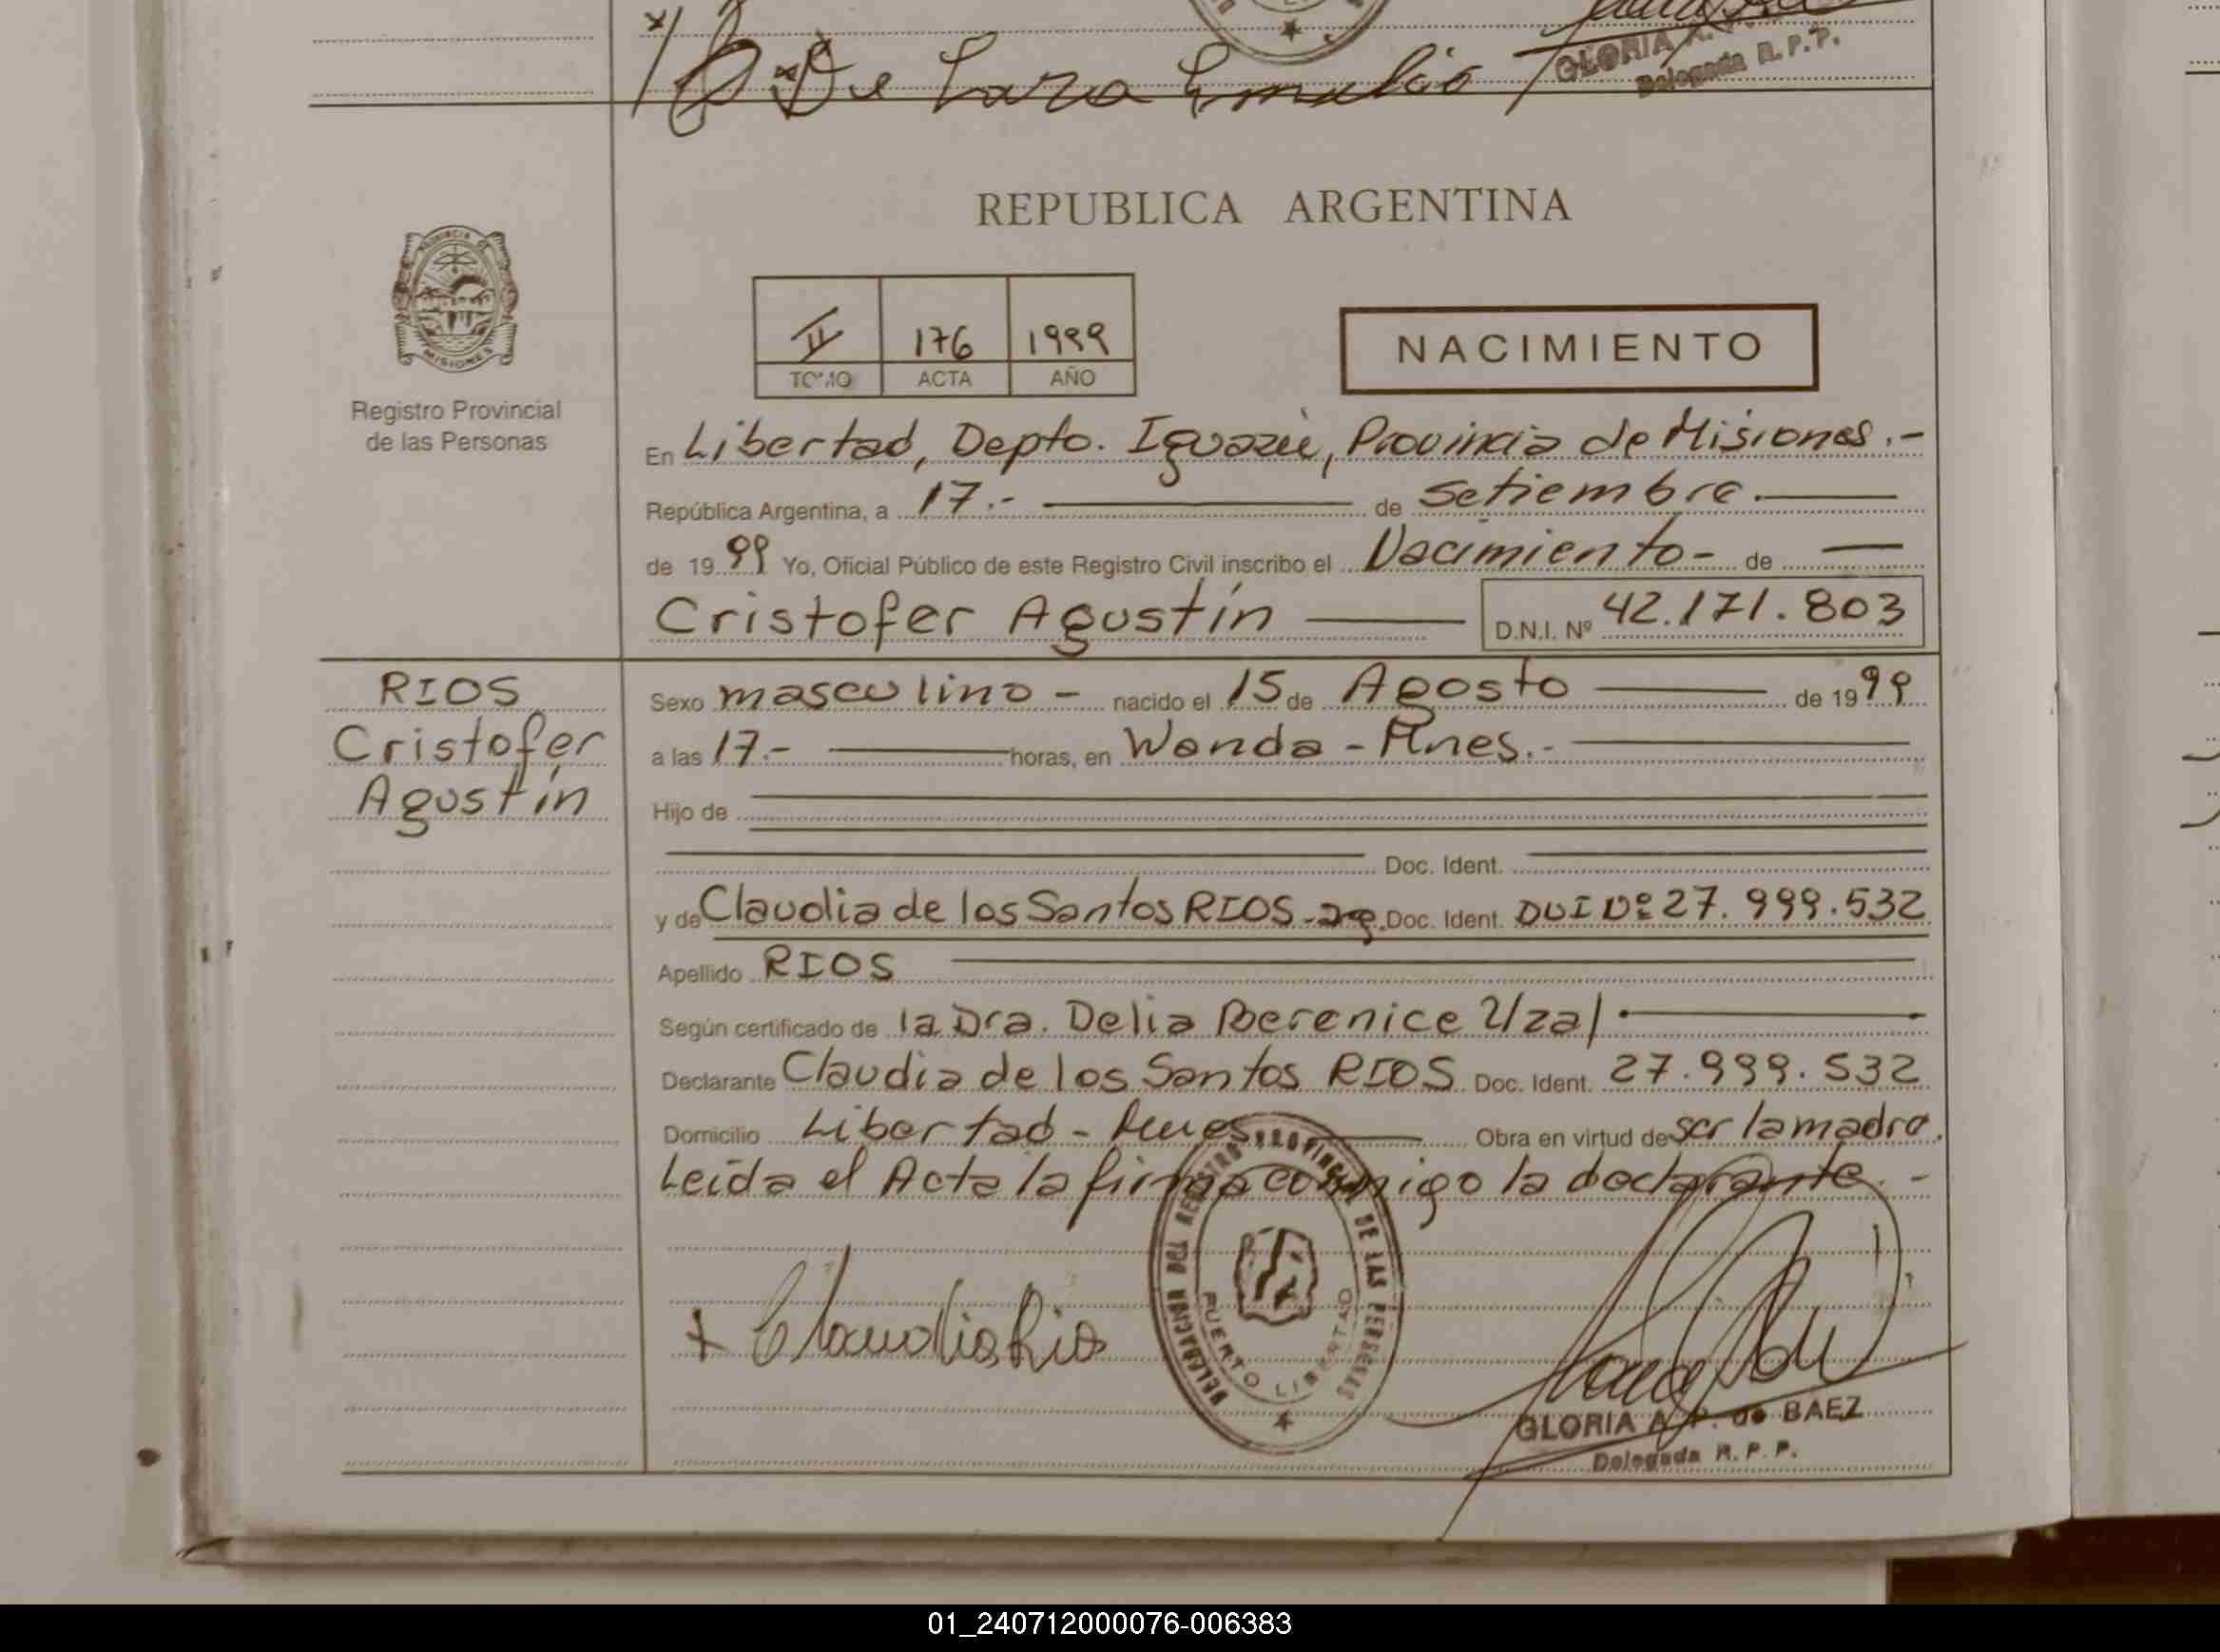 De Lara Emilio
GLORIA A.
Delegada R.P.P.
REPUBLICA ARGENTINA
PROVINCIA DE
MISIONES
Registro Provincial
de las Personas
II 176 1999
TOMO ACTA AÑO
NACIMIENTO
En Libertad, Depto. Iguazú, Provincia de Misiones.-
República Argentina, a 17.- de Setiembre.
de 1999 Yo, Oficial Público de este Registro Civil inscribo el Nacimiento- de
Cristofer Agustín D.N.I. Nº 42.171.803
RIOS
Cristofer
Agustín
Sexo masculino - nacido el 15 de Agosto de 1999
a las 17.- horas, en Wanda - Mnes.-
Hijo de
Doc. Ident.
y de Claudia de los Santos RIOS - arg. Doc. Ident. DUI Nº 27.999.532
Apellido RIOS
Según certificado de la Dra. Delia Berenice Uzal
Declarante Claudia de los Santos RIOS Doc. Ident. 27.999.532
Domicilio Libertad - Mnes Obra en virtud de ser la madre.
Leída el Acta la firma conmigo la declarante. -
DELEGACION DEL REGISTRO PROVINCIAL DE LAS PERSONAS
PUERTO LIBERTAD
+ Claudia Rios
GLORIA A. P. de BAEZ
Delegada R. P. P.
01_240712000076-006383